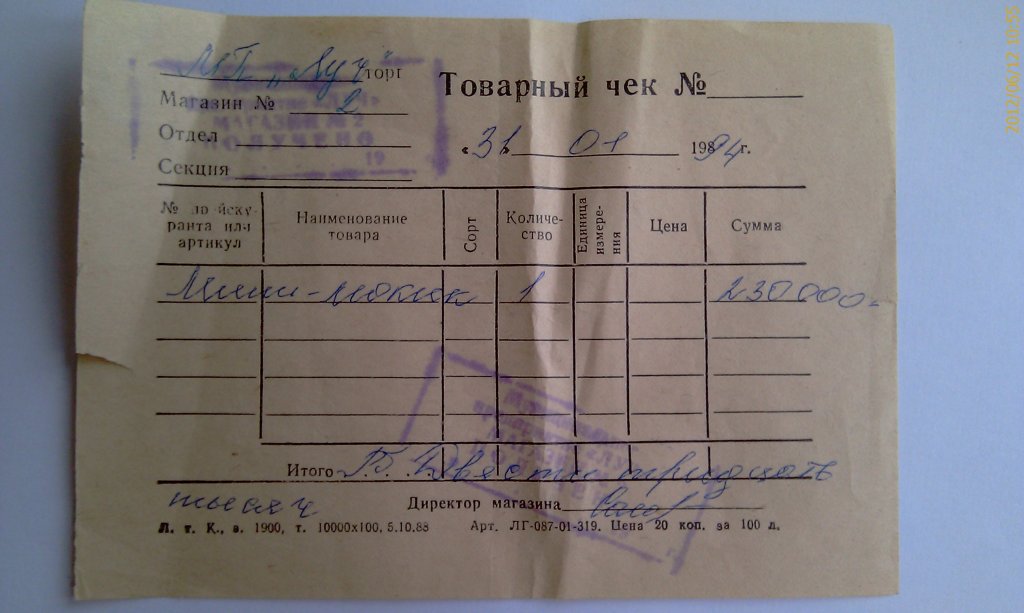 МП „Луч“ торг
Товарный чек №
Магазин № 2
МАГАЗИН № 2
Отдел
ПОЛУЧЕНО
«31» 01 1994 г.
19
Секция
№ по прейскуранта или артикул
Наименование товара
Сорт
Количество
Единица измерения
Цена
Сумма
Мини-мокик 1 230000=
Итого Двести тридцать
тысяч
Директор магазина
Л. т. К., з. 1900, т. 10000х100, 5.10.88 Арт. ЛГ-087-01-319. Цена 20 коп. за 100 л.
2012/06/12 10:55